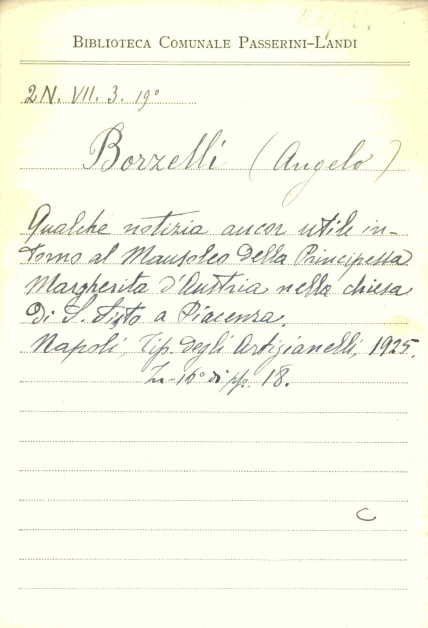 BIBLIOTECA COMUNALE PASSERINI-LANDI
2N. VII. 3. 19°
Borzelli (Angelo)
Qualche notizia ancor utile in-
torno al Mausoleo della Principessa
Margherita d'Austria nella chiesa
di S. Sisto a Piacenza.
Napoli, Tip. degli Artigianelli, 1925.
In-16° di pp. 18.
C